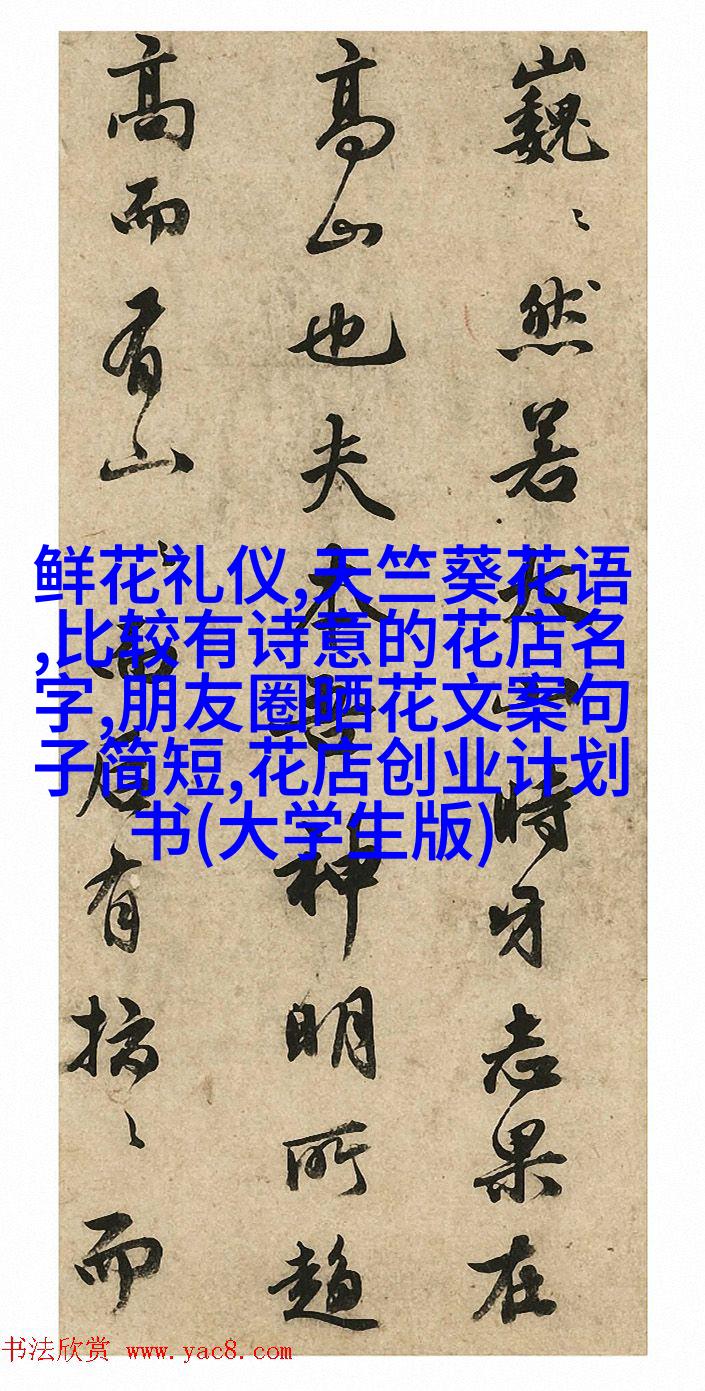 巍〻然若太山時志果在
高山也夫本神明所趨
高而有山〻有〻而
鲜花礼仪,天竺葵花语
,比较有诗意的花店名
字,朋友圈晒花文案句
子简短,花店创业计划
书(大学生版)
书法欣赏 www.yac8.com